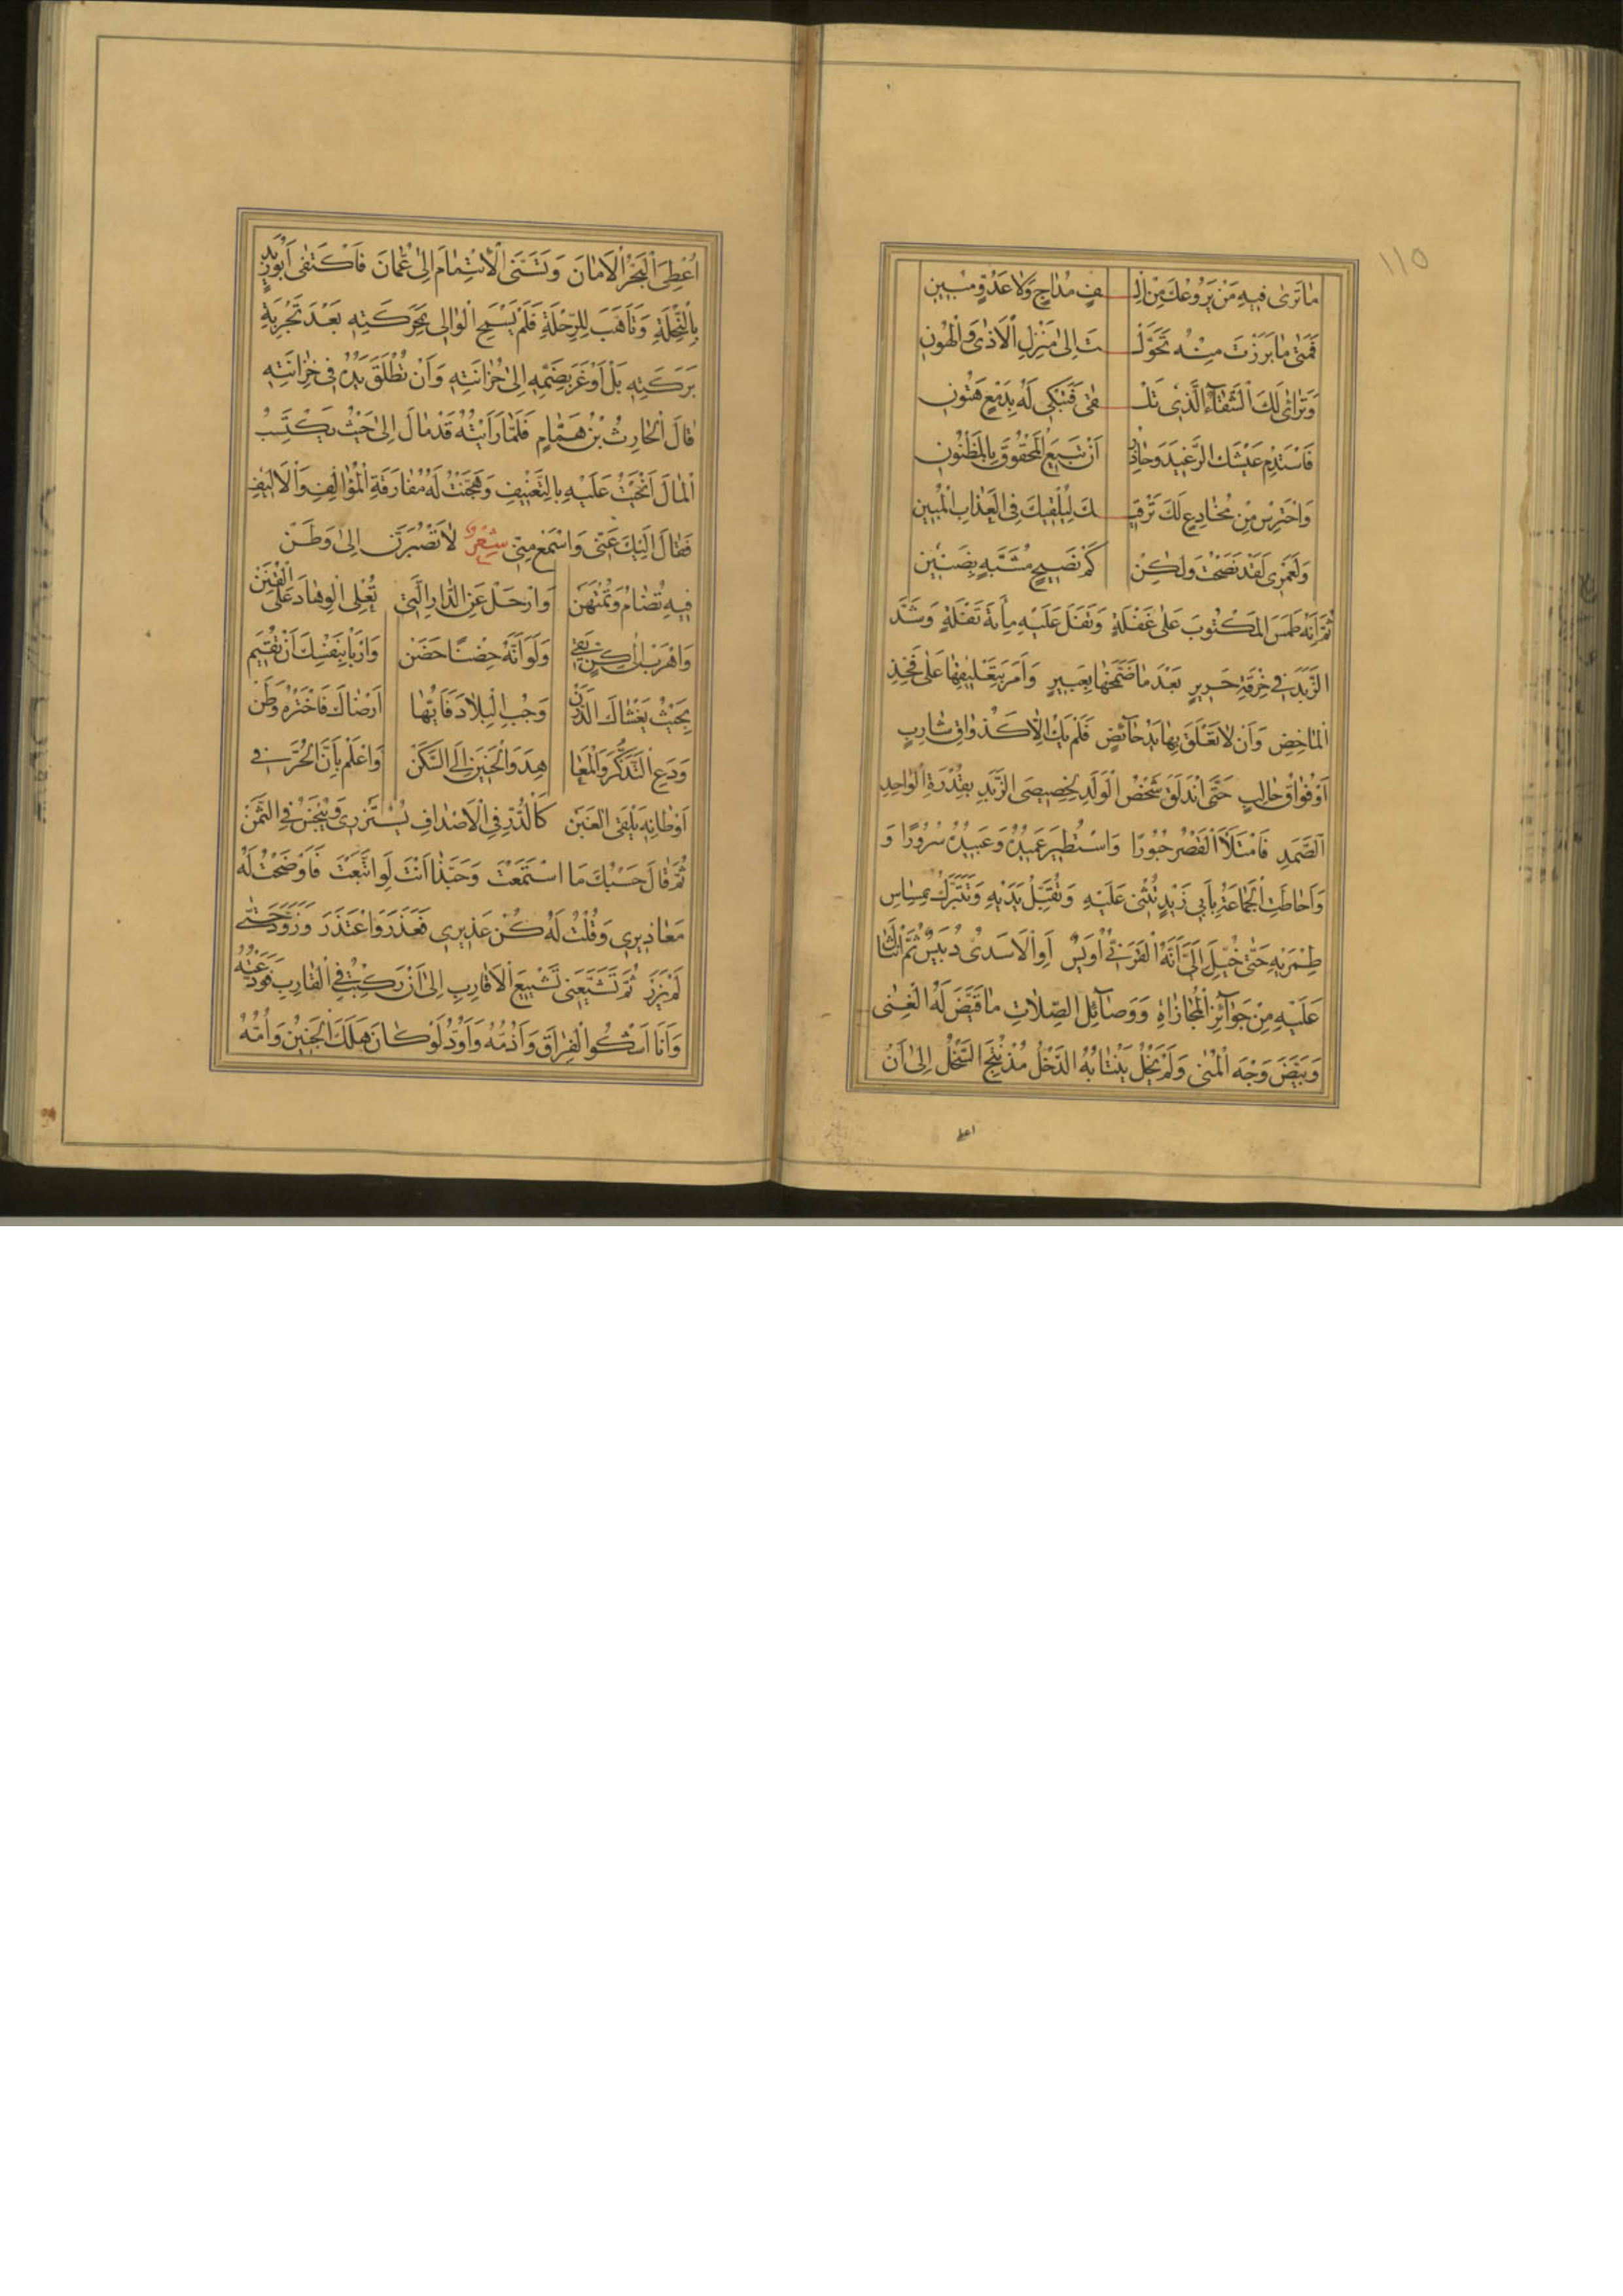 ١١٥
مَا تَرَىٰ فِيهِ مَنْ يَرُوعُكَ مِنْ اِلْـ ـفٍ مُدَاجٍ وَلَا عَدُوٍّ مُبِينِ
فَمَتَىٰ مَا بَرَزْتَ مِنْهُ تَحَوَّلْـ ـتَ اِلَىٰ مَنْزِلِ الْاَذَىٰ وَالْهُونِ
وَتَرَاءَىٰ لَكَ الشَّقَاءُ الَّذِي تَلْـ ـقَىٰ فَتَبْكِي لَهُ بِدَمْعٍ هَتُونِ
فَاسْتَدِمْ عَيْشَكَ الرَّغِيدَ وَحَاذِرْ اَنْ تَبِيعَ الْمَحْقُوقَ بِالْمَظْنُونِ
وَاحْتَرِسْ مِنْ مُخَادِعٍ لَكَ يَرْقِيـ ـكَ لِيُلْقِيكَ فِي الْعَذَابِ الْمُهِينِ
وَلَعَمْرِي لَقَدْ نَصَحْتُ وَلٰكِنْ كَمْ نَصِيحٍ مُشَبَّهٍ بِضَنِينِ
ثُمَّ اِنَّهُ طَمَسَ الْمَكْتُوبَ عَلَىٰ غَفْلَةٍ وَتَفَلَ عَلَيْهِ مِأَةَ تَفْلَةٍ وَشَدَّ
الزَّبَدَ فِي خِرْقَةِ حَرِيرٍ بَعْدَ مَا ضَمَّخَهَا بِعَبِيرٍ وَاَمَرَ بِتَعْلِيقِهَا عَلَىٰ فَخِذِ
الْمَاخِضِ وَاَنْ لَا تَعْلَقَ بِهَا يَدُ حَائِضٍ فَلَمْ يَكُ اِلَّا كَذَوَاقِ شَارِبٍ
اَوْ فُوَاقِ حَالِبٍ حَتَّى انْدَلَقَ شَخْصُ الْوَلَدِ لِخِصِّيصَى الزَّبَدِ بِقُدْرَةِ الْوَاحِدِ
الصَّمَدِ فَامْتَلَأَ الْقَصْرُ حُبُورًا وَاسْتُطِيرَ عَمِيدُهُ وَعَبِيدُهُ سُرُورًا وَ
وَاَحَاطَتِ الْجَمَاعَةُ بِاَبِي زَيْدٍ تُثْنِي عَلَيْهِ وَتُقَبِّلُ يَدَيْهِ وَتَتَبَرَّكُ بِمِسَاسِ
طِمْرَيْهِ حَتَّىٰ خُيِّلَ اِلَيَّ اَنَّهُ الْقَرَنِيُّ اُوَيْسٌ اَوِ الْاَسَدِيُّ دُبَيْسٌ ثُمَّ انْثَالَ
عَلَيْهِ مِنْ جَوَائِزِ الْمُجَازَاةِ وَوَصَائِلِ الصِّلَاتِ مَا قَيَّضَ لَهُ الْغِنَىٰ
وَبَيَّضَ وَجْهَ الْمُنَىٰ وَلَمْ يَزَلْ يَنْتَابُهُ الدَّخْلُ مُذْ نُتِجَ السَّخْلُ اِلَىٰ اَنْ
اعطى
اُعْطِيَ الْبَحْرُ الْاَمَانَ وَتَسَنَّى الْاِتْمَامَ اِلَىٰ عُمَانَ فَاكْتَفَىٰ اَبُو زَيْدٍ
بِالنِّحْلَةِ وَتَأَهَّبَ لِلرِّحْلَةِ فَلَمْ يَسْمَحِ الْوَالِي بِحَرَكَتِهِ بَعْدَ تَجْرِبَةِ
بَرَكَتِهِ بَلْ اَوْعَزَ بِضَمِّهِ اِلَىٰ حُزَانَتِهِ وَاَنْ تُطْلَقَ يَدُهُ فِي خِزَانَتِهِ
قَالَ الْحَارِثُ بْنُ هَمَّامٍ فَلَمَّا رَاَيْتُهُ قَدْ مَالَ اِلَىٰ حَيْثُ يَكْتَسِبُ
الْمَالَ اَنْحَيْتُ عَلَيْهِ بِالتَّعْنِيفِ وَهَجَّنْتُ لَهُ مُفَارَقَةَ الْمُؤَالِفِ وَالْاَلِيفِ
فَقَالَ اِلَيْكَ عَنِّي وَاسْمَعْ مِنِّي شِعْرٌ لَا تَصْبُرَنَّ اِلَىٰ وَطَنْ
فِيهِ تُضَامُ وَتُمْتَهَنْ وَارْحَلْ عَنِ الدَّارِ الَّتِي تُعْلِي الْوِهَادَ عَلَى الْقُنَنْ
وَاهْرَبْ اِلَىٰ كِنٍّ يَقِي وَلَوْ اَنَّهُ حِضْنَا حَضَنْ وَارْبَأْ بِنَفْسِكَ اَنْ تُقِيمَ
بِحَيْثُ يَغْشَاكَ الدَّرَنْ وَجُبِ الْبِلَادَ فَاَيُّهَا اَرْضَاكَ فَاخْتَرْهُ وَطَنْ
وَدَعِ التَّذَكُّرَ وَالْمَعَا هِدَ وَالْحَنِينَ اِلَى السَّكَنْ وَاعْلَمْ بِاَنَّ الْحُرَّ فِي
اَوْطَانِهِ يَلْقَى الْغَبَنْ كَالدُّرِّ فِي الْاَصْدَافِ يُسْتَزْرَىٰ وَيُبْخَسُ فِي الثَّمَنْ
ثُمَّ قَالَ حَسْبُكَ مَا اسْتَمَعْتَ وَحَبَّذَا اَنْتَ لَوِ اتَّبَعْتَ فَاَوْضَحْتُ لَهُ
مَعَاذِيرِي وَقُلْتُ لَهُ كُنْ عَذِيرِي فَعَذَرَ وَاعْتَذَرَ وَزَوَّدَ حَتَّىٰ
لَمْ يَذَرْ ثُمَّ تَشَيَّعَنِي تَشْيِيعَ الْاَقَارِبِ اِلَىٰ اَنْ رَكِبْتُ فِي الْقَارِبِ فَوَدَّعْتُهُ
وَاَنَا اَشْكُوا الْفِرَاقَ وَاَذُمُّهُ وَاَوَدُّ لَوْ كَانَ هَلَكَ الْجَنِينُ وَاُمُّهُ